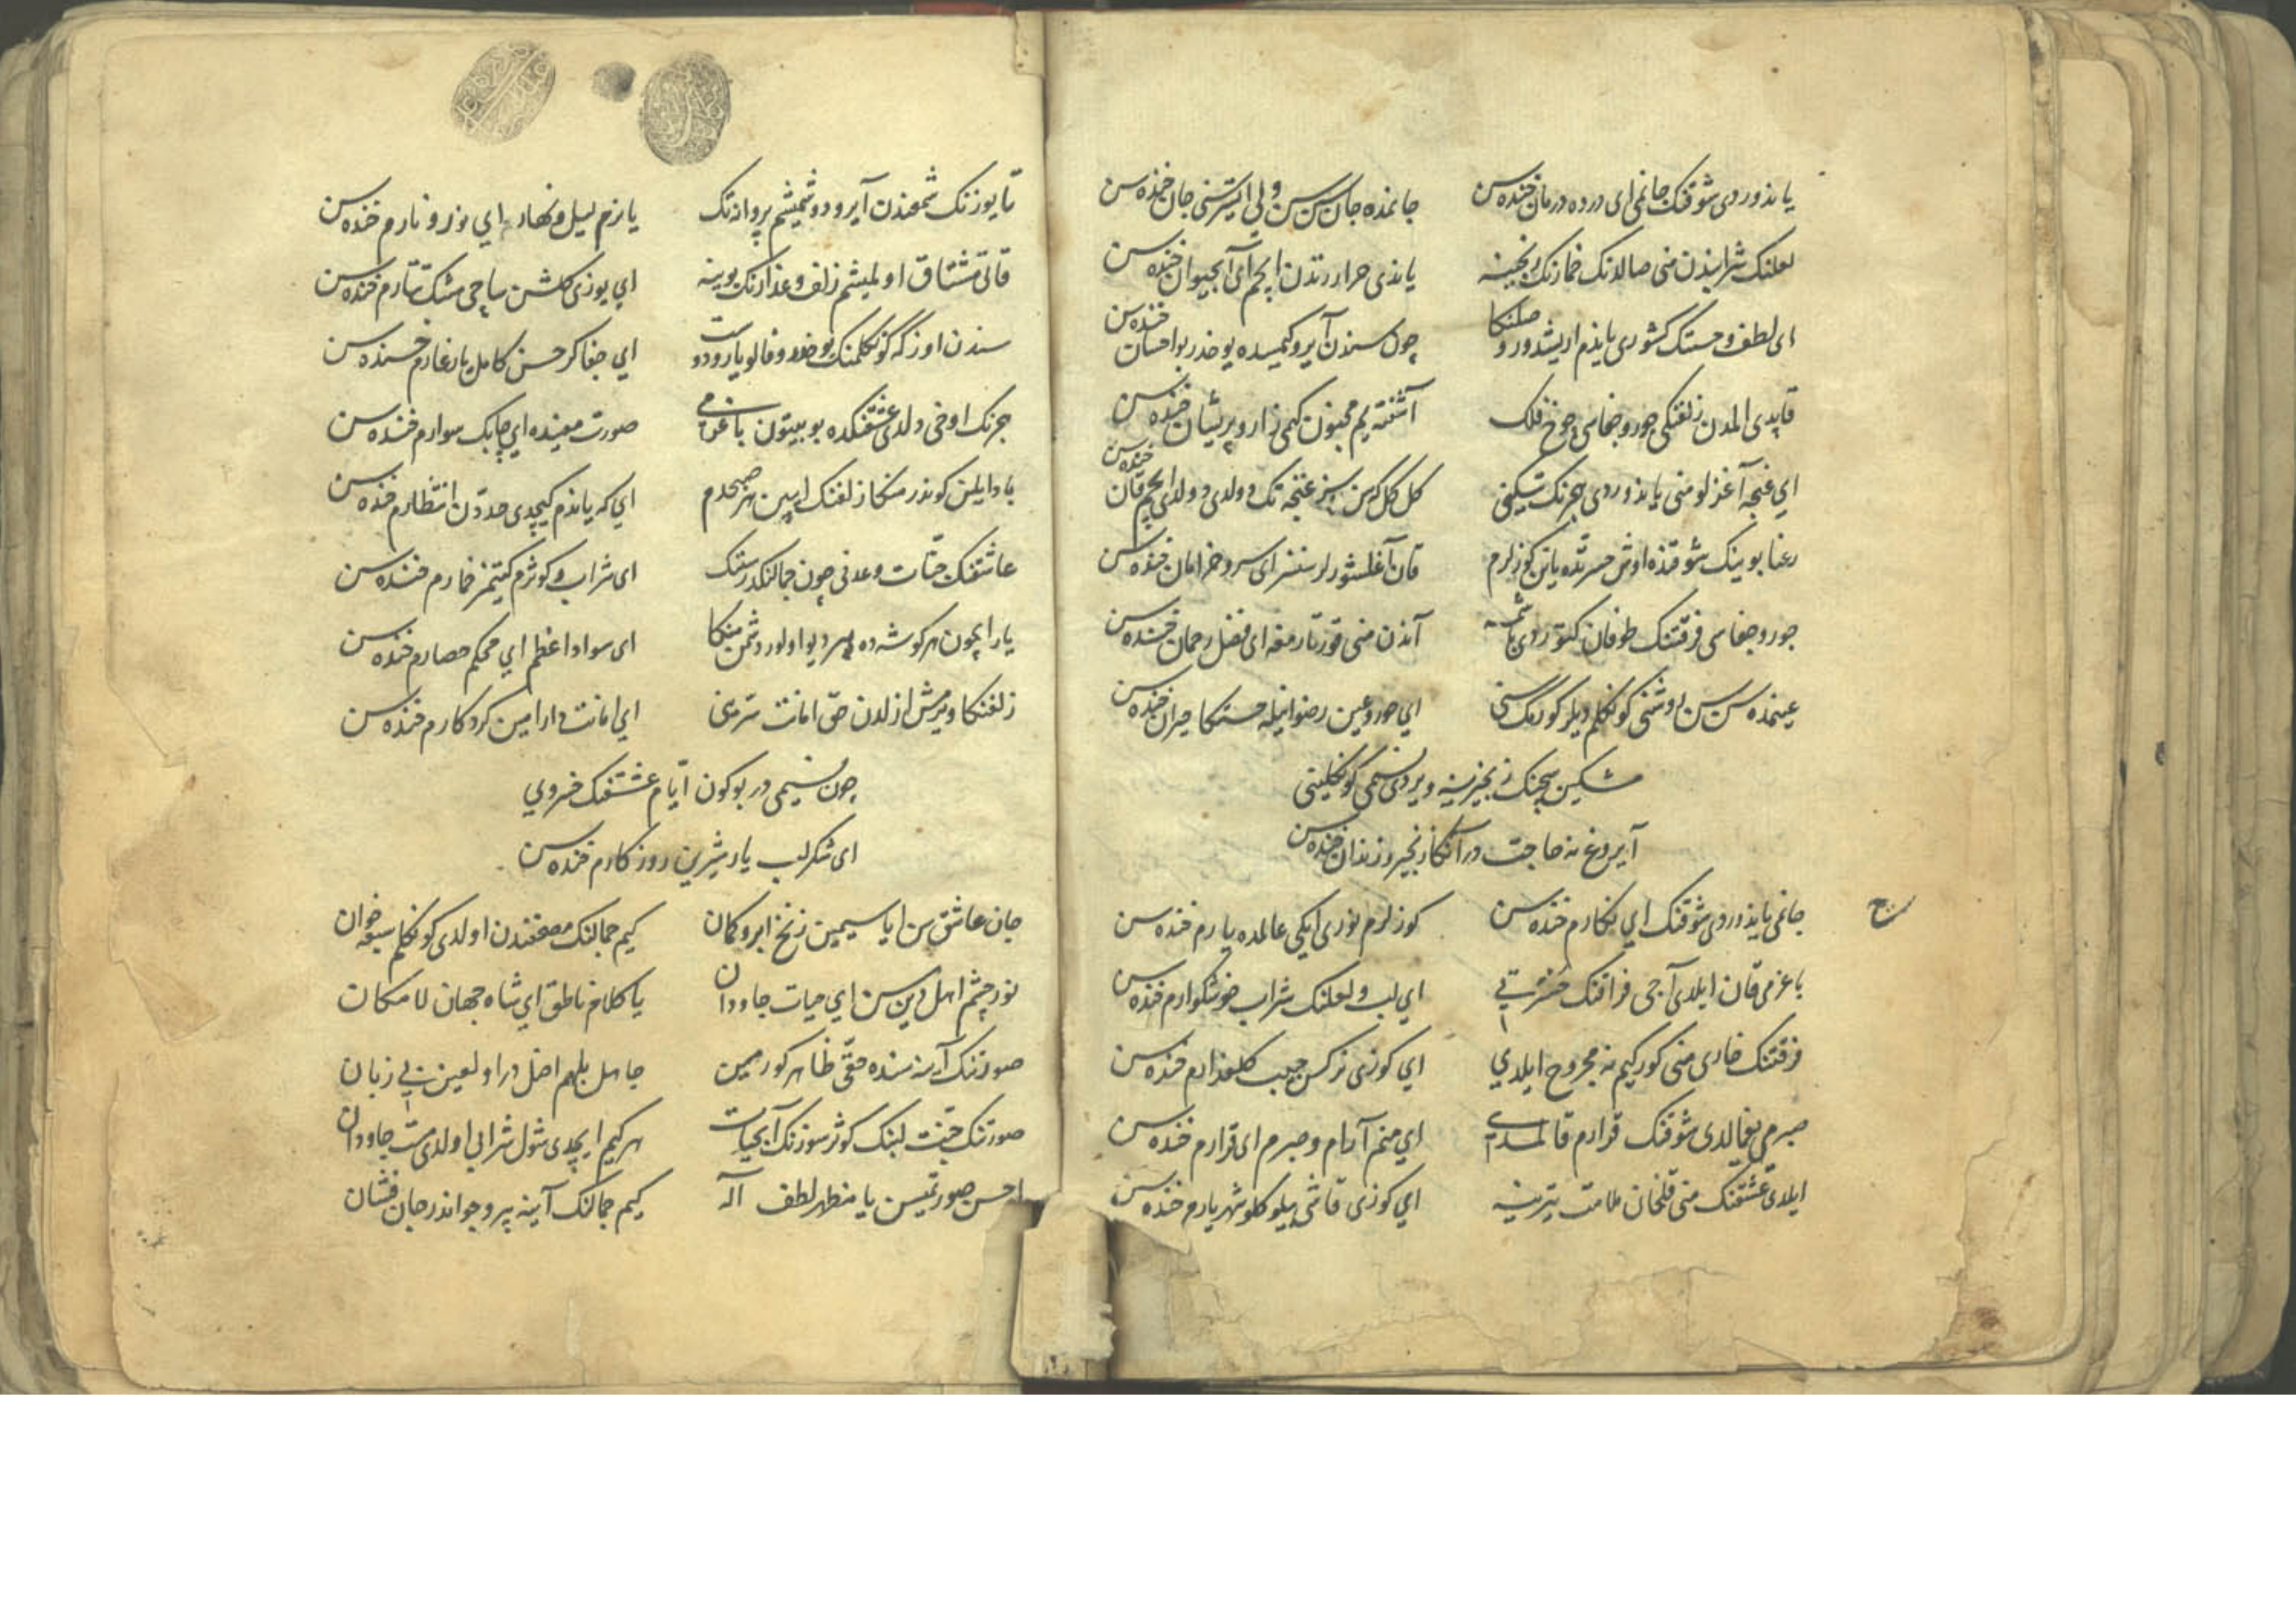 یاندوردی شوقنک جانمی ای درده درمان خنده سن جانمده جان سن سن ولی ایستر سنی جان خنده سن
لعلنک شرابندن منی صالدنک خمارنک رنجینه یاندی حرارتدن ایچم ای آبحیوان خنده سن
ای لطف و حسنک کشوری یاندم اریشدور وصلنکا چون سندن آیرو کیمسده یوخدر بو احسان خنده سن
قاپدی المدن زلفنکی جور و جفاسی چرخ فلک آشفته یم مجنون کیمی زار و پریشان خنده سن
ای غنچه آغزلو منی یاندوردی هجرنک تیکنی کل کل که سن سز غنچه تک دولدی دولدی ایچم قان خنده سن
رعنا بوینک شوقنده اوش حسرتده یاتن کوزلرم قان آغلشورلر سنسز ای سرو خرامان خنده سن
جور و جفاسی فرقتنک طوفان کتوردی باشمه آندن منی قورتارمغه ای فضل رحمان خنده سن
عینمده سن سن روشنی کونکلم دیلر کورمک سنی ای حور و عین رضوانیله حسنکا حیران خنده سن
مشکین سچنک زنجیرینه ویردی نسیمی کونکلینی
آیروغ نه حاجت در آنکا زنجیر و زندان خنده سن
ح
جانمی یاندوردی شوقنک ای نکارم خنده سن کوزلرم نوری ایکی عالمده یارم خنده سن
باغرمی قان ایلدی آجی فراقنک شربتی ای لب و لعلنک شراب خوشکوارم خنده سن
فرقتنک خاری منی کور کیم نه مجروح ایلدی ای کوزی نرکس حبیب کلعذارم خنده سن
صبرمی یغمالدی شوقنک قرارم قالمدی ای منم آرام و صبرم ای قرارم خنده سن
ایلدی عشقنک منی قلخان ملامت تیرینه ای کوزی قاشی ییلو کلو شهریارم خنده سن
تا یوزنک شمعندن آیرو دوشمیشم پروانه تک یانرم لیل و نهار ای نور و نارم خنده سن
قاتی مشتاق اولمیشم زلف و عذارنک بوینه ای یوزی کلشن ساچی مشک تتارم خنده سن
سندن اوزکه کونکلمنک یوخدر وفالو یاری دوست ای جفاکر حسن کامل یار غارم خنده سن
هجرنک اوخی دلدی عشقنکده بو بیتون باغرمی صورت معینده ای چابک سوارم خنده سن
بادایلن کوندر منکا زلفنک ایسین هر صبحدم ای که یاندم کیچدی حددن انتظارم خنده سن
عاشقنک جنات و عدنی چون جمالنکدر سنک ای شراب و کوثرم کیتمز خمارم خنده سن
یار ایچون هر کوشه ده هر دیو اولور دشمن منکا ای سواد اعظم ای محکم حصارم خنده سن
زلفنکا ویرمش ازلدن حق امانت سرینی ای امانت دار امین کردکارم خنده سن
چون نسیمی در بو کون ایام عشقنک خسروی
ای شکر لب یار شیرین روزکارم خنده سن
جان عاشق سن ایا سیمین زنخ ابرو کمان کیم جمالنک مصحفندن اولدی کونکلم سبعه خوان
نور چشم اهل دین سن ای حیات جاودان یا کلام ناطق ای شاه جهان لامکان
صورتنک آینه سنده حقی ظاهر کورمین جاهل بلهم اضل در اول لعین بی زبان
صورتنک جنت لبنک کوثر سوزنک آبحیات هر کیم ایچدی شول شرابی اولدی مست جاودان
احسن صورتمیسن یا مظهر لطف اله کیم جمالنک آینه پیر و جواندر جان فشان